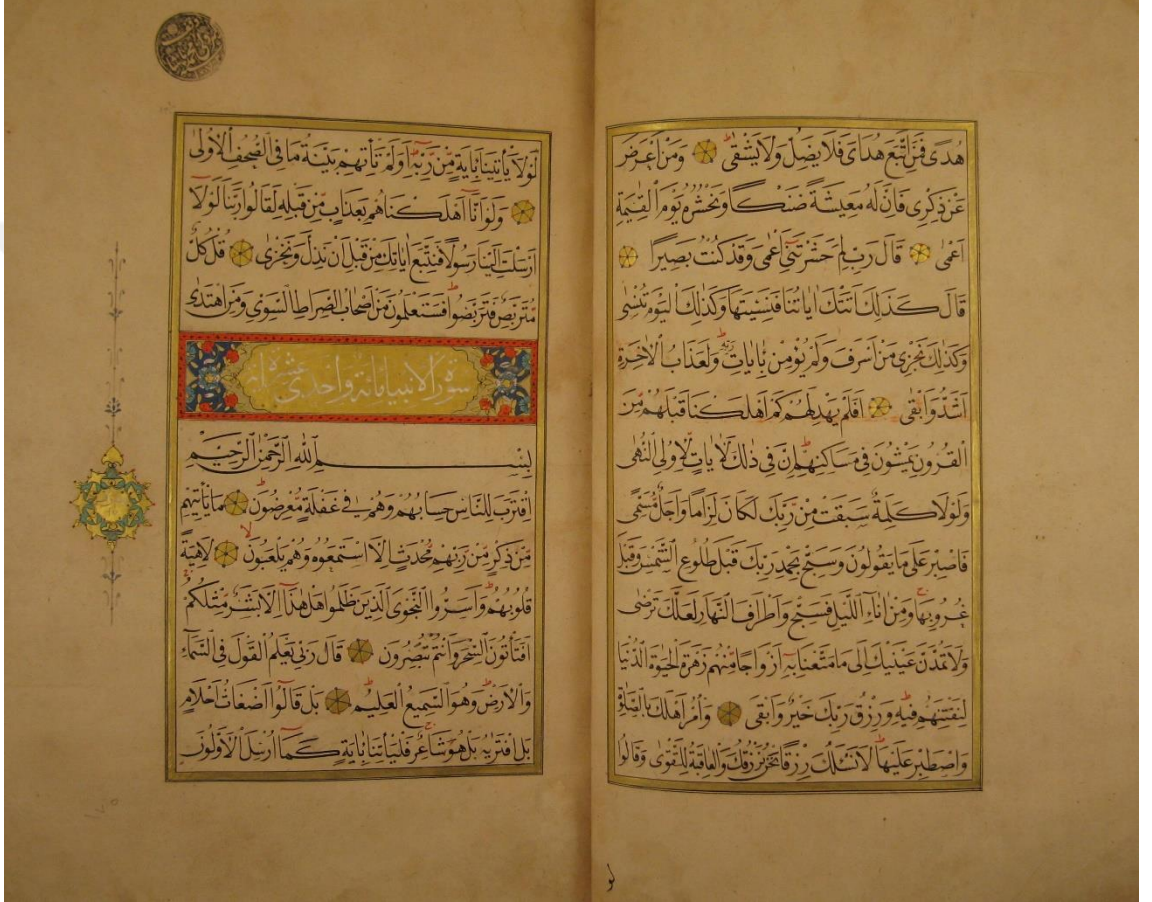 هُدًى فَمَنِ اتَّبَعَ هُدَايَ فَلَا يَضِلُّ وَلَا يَشْقَى وَمَنْ أَعْرَضَ
عَنْ ذِكْرِي فَإِنَّ لَهُ مَعِيشَةً ضَنْكًا وَنَحْشُرُهُ يَوْمَ الْقِيٰمَةِ
اَعْمٰى قَالَ رَبِّ لِمَ حَشَرْتَنِي أَعْمَى وَقَدْ كُنْتُ بَصِيرًا
قَالَ كَذَلِكَ اَتَتْكَ اٰيَاتُنَا فَنَسِيتَهَا وَكَذَلِكَ الْيَوْمَ تُنْسٰى
وَكَذَلِكَ نَجْزِي مَنْ اَسْرَفَ وَلَمْ يُؤْمِنْ بِاٰيَاتِ رَبِّهِ وَلَعَذَابُ الْاٰخِرَةِ
اَشَدُّ وَاَبْقٰى اَفَلَمْ يَهْدِ لَهُمْ كَمْ اَهْلَكْنَا قَبْلَهُمْ مِنَ
الْقُرُونِ يَمْشُونَ فِي مَسَاكِنِهِمْ اِنَّ فِي ذٰلِكَ لَاٰيَاتٍ لِاُولِي النُّهٰى
وَلَوْلَا كَلِمَةٌ سَبَقَتْ مِنْ رَبِّكَ لَكَانَ لِزَامًا وَاَجَلٌ مُسَمًّى
فَاصْبِرْ عَلٰى مَا يَقُولُونَ وَسَبِّحْ بِحَمْدِ رَبِّكَ قَبْلَ طُلُوعِ الشَّمْسِ وَقَبْلَ
غُرُوبِهَا وَمِنْ اٰنَاءِ اللَّيْلِ فَسَبِّحْ وَاَطْرَافَ النَّهَارِ لَعَلَّكَ تَرْضٰى
وَلَا تَمُدَّنَّ عَيْنَيْكَ اِلٰى مَا مَتَّعْنَا بِهِ اَزْوَاجًا مِنْهُمْ زَهْرَةَ الْحَيٰوةِ الدُّنْيَا
لِنَفْتِنَهُمْ فِيهِ وَرِزْقُ رَبِّكَ خَيْرٌ وَاَبْقٰى وَأْمُرْ اَهْلَكَ بِالصَّلٰوةِ
وَاصْطَبِرْ عَلَيْهَا لَا نَسْـَٔلُكَ رِزْقًا نَحْنُ نَرْزُقُكَ وَالْعَاقِبَةُ لِلتَّقْوٰى وَقَالُوا
لو
لَوْلَا يَأْتِينَا بِاٰيَةٍ مِنْ رَبِّهِ اَوَلَمْ تَأْتِهِمْ بَيِّنَةُ مَا فِي الصُّحُفِ الْاُولٰى
وَلَوْ اَنَّا اَهْلَكْنَاهُمْ بِعَذَابٍ مِنْ قَبْلِهِ لَقَالُوا رَبَّنَا لَوْلَا
اَرْسَلْتَ اِلَيْنَا رَسُولًا فَنَتَّبِعَ اٰيَاتِكَ مِنْ قَبْلِ اَنْ نَذِلَّ وَنَخْزٰى قُلْ كُلٌّ
مُتَرَبِّصٌ فَتَرَبَّصُوا فَسَتَعْلَمُونَ مَنْ اَصْحَابُ الصِّرَاطِ السَّوِيِّ وَمَنِ اهْتَدٰى
سورة الانبيا مائة واحدى عشرة اية
بِسْمِ اللّٰهِ الرَّحْمٰنِ الرَّحِيمِ
اِقْتَرَبَ لِلنَّاسِ حِسَابُهُمْ وَهُمْ فِي غَفْلَةٍ مُعْرِضُونَ مَا يَأْتِيهِمْ
مِنْ ذِكْرٍ مِنْ رَبِّهِمْ مُحْدَثٍ اِلَّا اسْتَمَعُوهُ وَهُمْ يَلْعَبُونَ لَاهِيَةً
قُلُوبُهُمْ وَاَسَرُّوا النَّجْوَى الَّذِينَ ظَلَمُوا هَلْ هٰذَا اِلَّا بَشَرٌ مِثْلُكُمْ
اَفَتَأْتُونَ السِّحْرَ وَاَنْتُمْ تُبْصِرُونَ قَالَ رَبِّي يَعْلَمُ الْقَوْلَ فِي السَّمَاءِ
وَالْاَرْضِ وَهُوَ السَّمِيعُ الْعَلِيمُ بَلْ قَالُوا اَضْغَاثُ اَحْلَامٍ
بَلِ افْتَرٰيهُ بَلْ هُوَ شَاعِرٌ فَلْيَأْتِنَا بِاٰيَةٍ كَمَا اُرْسِلَ الْاَوَّلُونَ